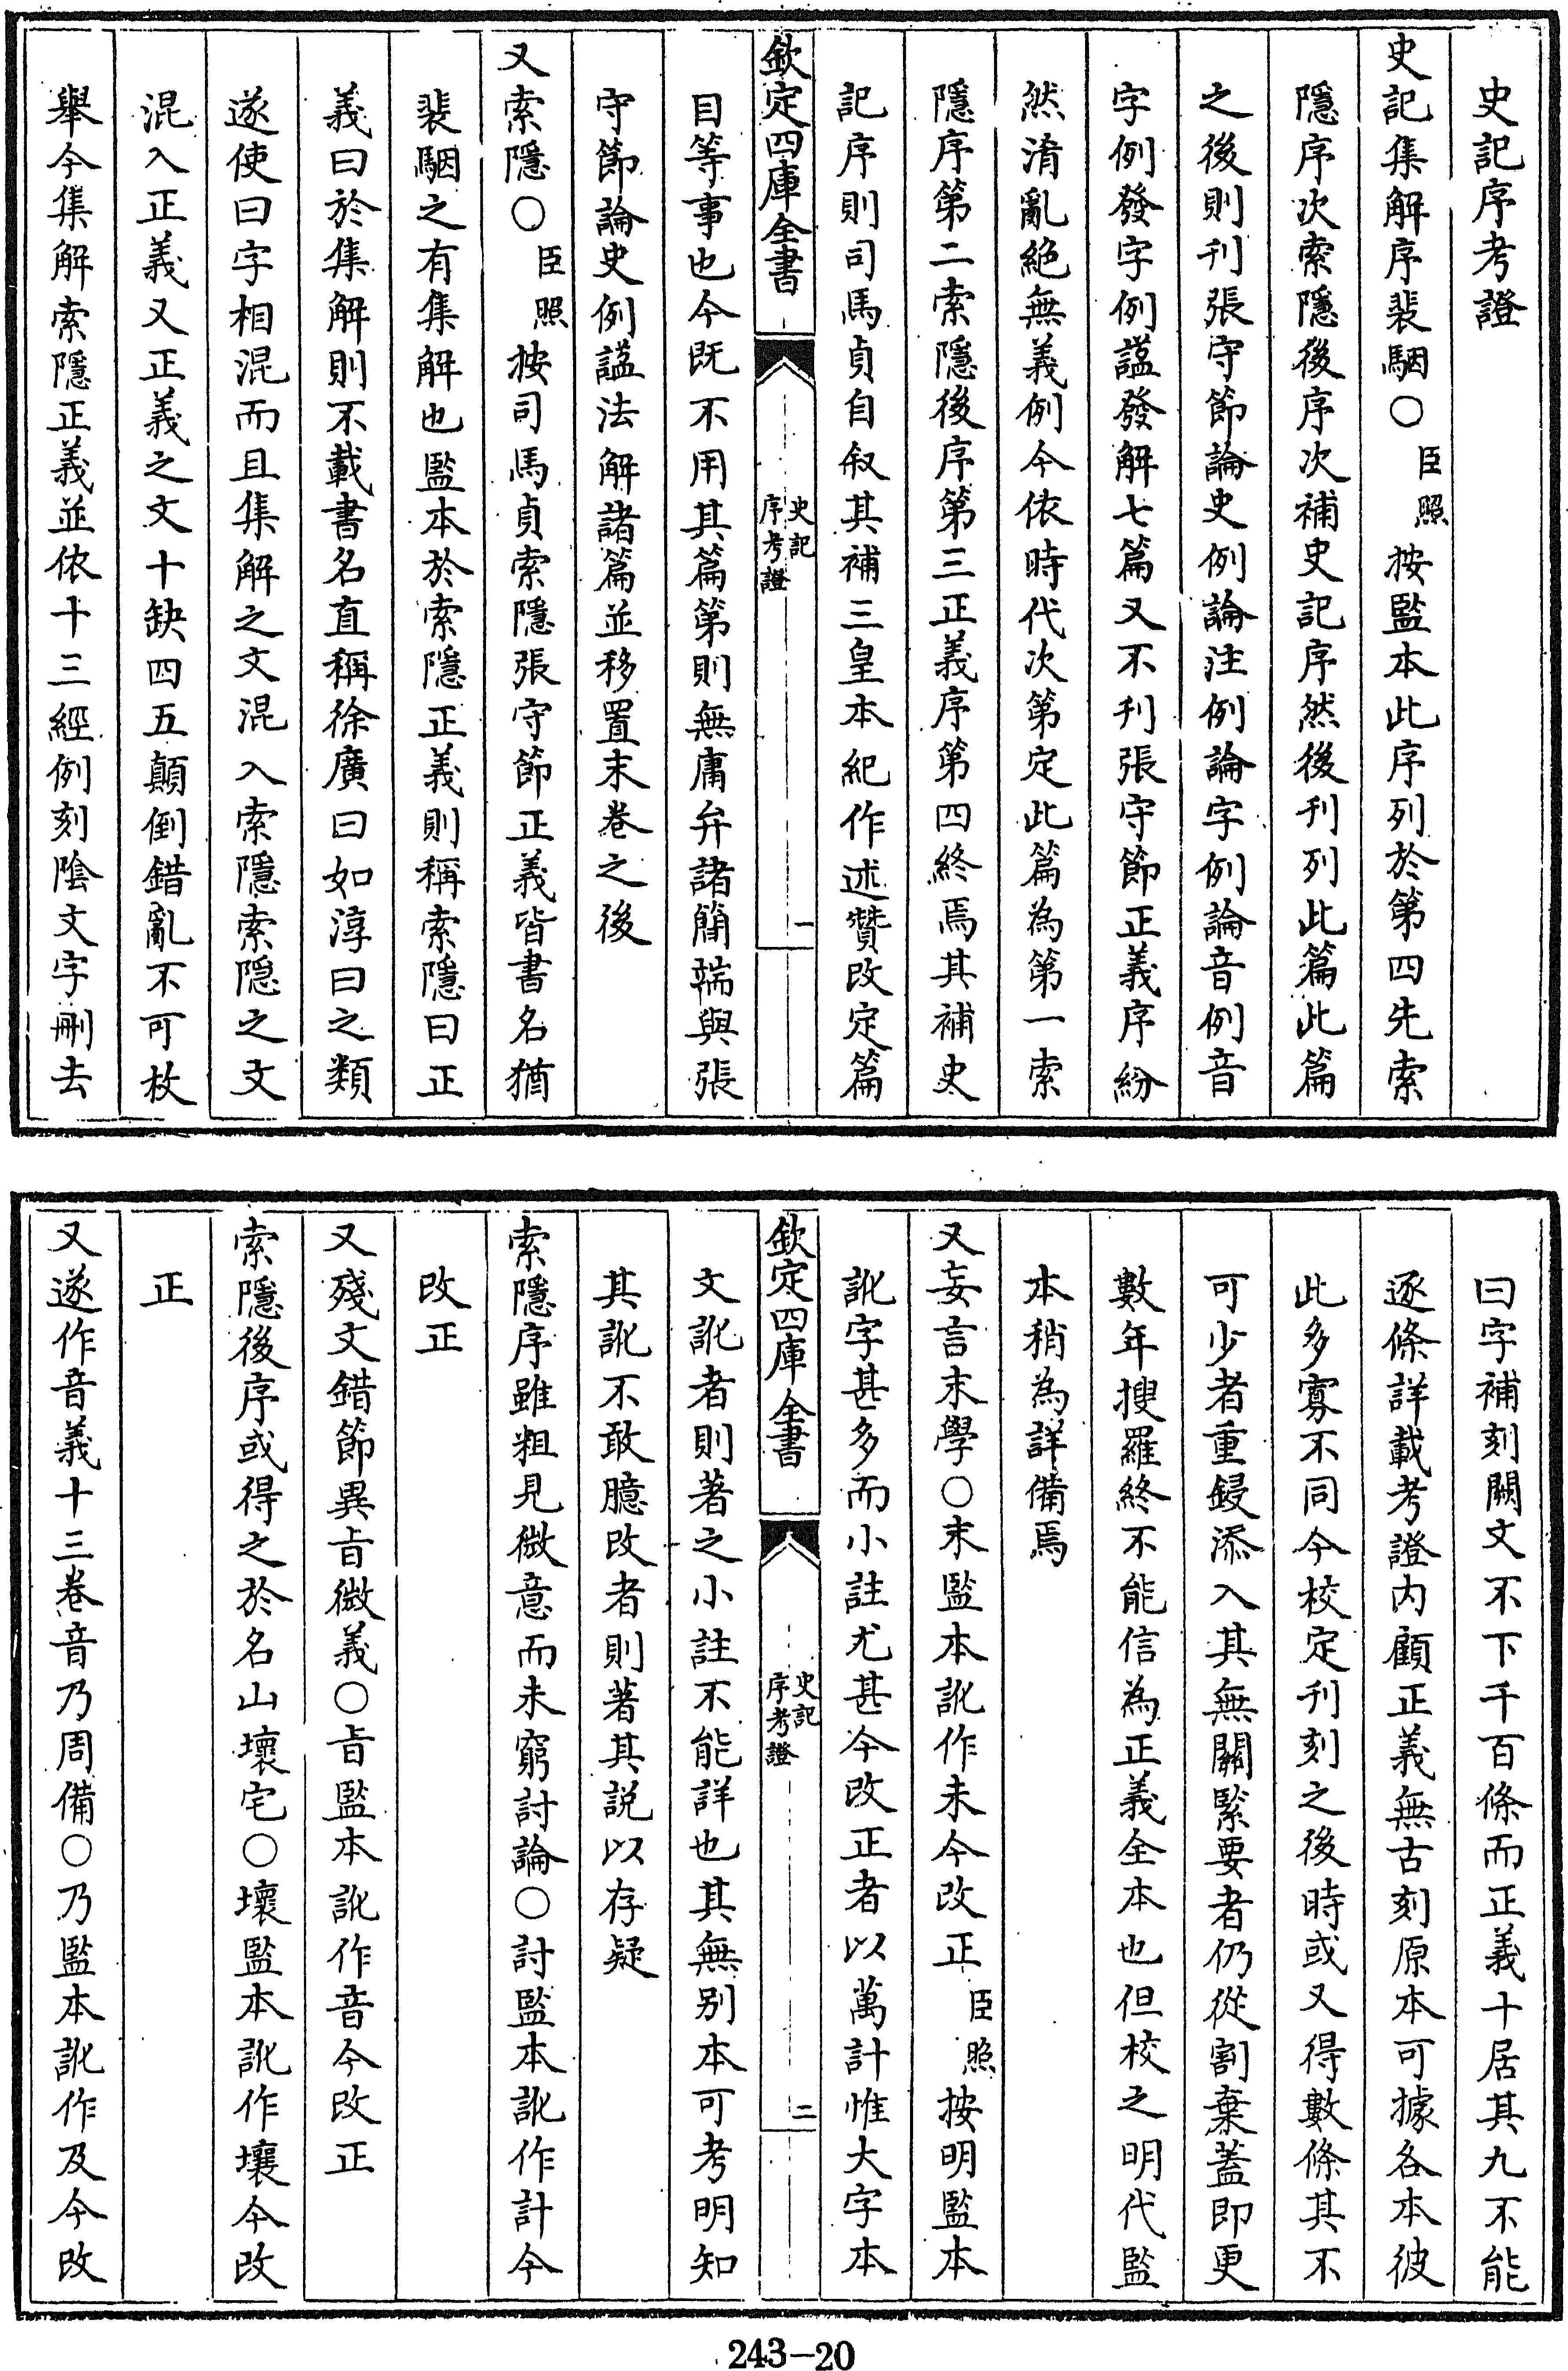 史記序考證
史記集解序裴駰○臣照按監本此序列於第四先索
隱序次索隱後序次補史記序然後刊列此篇此篇
之後則刊張守節論史例論注例論字例論音例音
字例發字例謚發解七篇又不刊張守節正義序紛
然淆亂絕無義例今依時代次第定此篇為第一索
隱序第二索隱後序第三正義序第四終焉其補史
記序則司馬貞自叙其補三皇本紀作述贊改定篇
欽定四庫全書
史記
序考證
一
目等事也今既不用其篇第則無庸弁諸簡端與張
守節論史例謚法解諸篇並移置末卷之後
又索隱○臣照按司馬貞索隱張守節正義皆書名猶
裴駰之有集解也監本於索隱正義則稱索隱曰正
義曰於集解則不載書名直稱徐廣曰如淳曰之類
遂使曰字相混而且集解之文混入索隱索隱之文
混入正義又正義之文十缺四五顛倒錯亂不可枚
舉今集解索隱正義並依十三經例刻陰文字刪去
曰字補刻闕文不下千百條而正義十居其九不能
逐條詳載考證内顧正義無古刻原本可據各本彼
此多寡不同今校定刊刻之後時或又得數條其不
可少者重鋟添入其無關緊要者仍從割棄蓋即更
數年搜羅終不能信為正義全本也但校之明代監
本稍為詳備焉
又妄言末學○末監本訛作未今改正臣照按明監本
訛字甚多而小註尤甚今改正者以萬計惟大字本
欽定四庫全書
史記
序考證
二
文訛者則著之小註不能詳也其無別本可考明知
其訛不敢臆改者則著其説以存疑
索隱序雖粗見微意而未窮討論○討監本訛作計今
改正
又殘文錯節異旨微義○旨監本訛作音今改正
索隱後序或得之於名山壞宅○壞監本訛作壤今改
正
又遂作音義十三卷音乃周備○乃監本訛作及今改
243-20